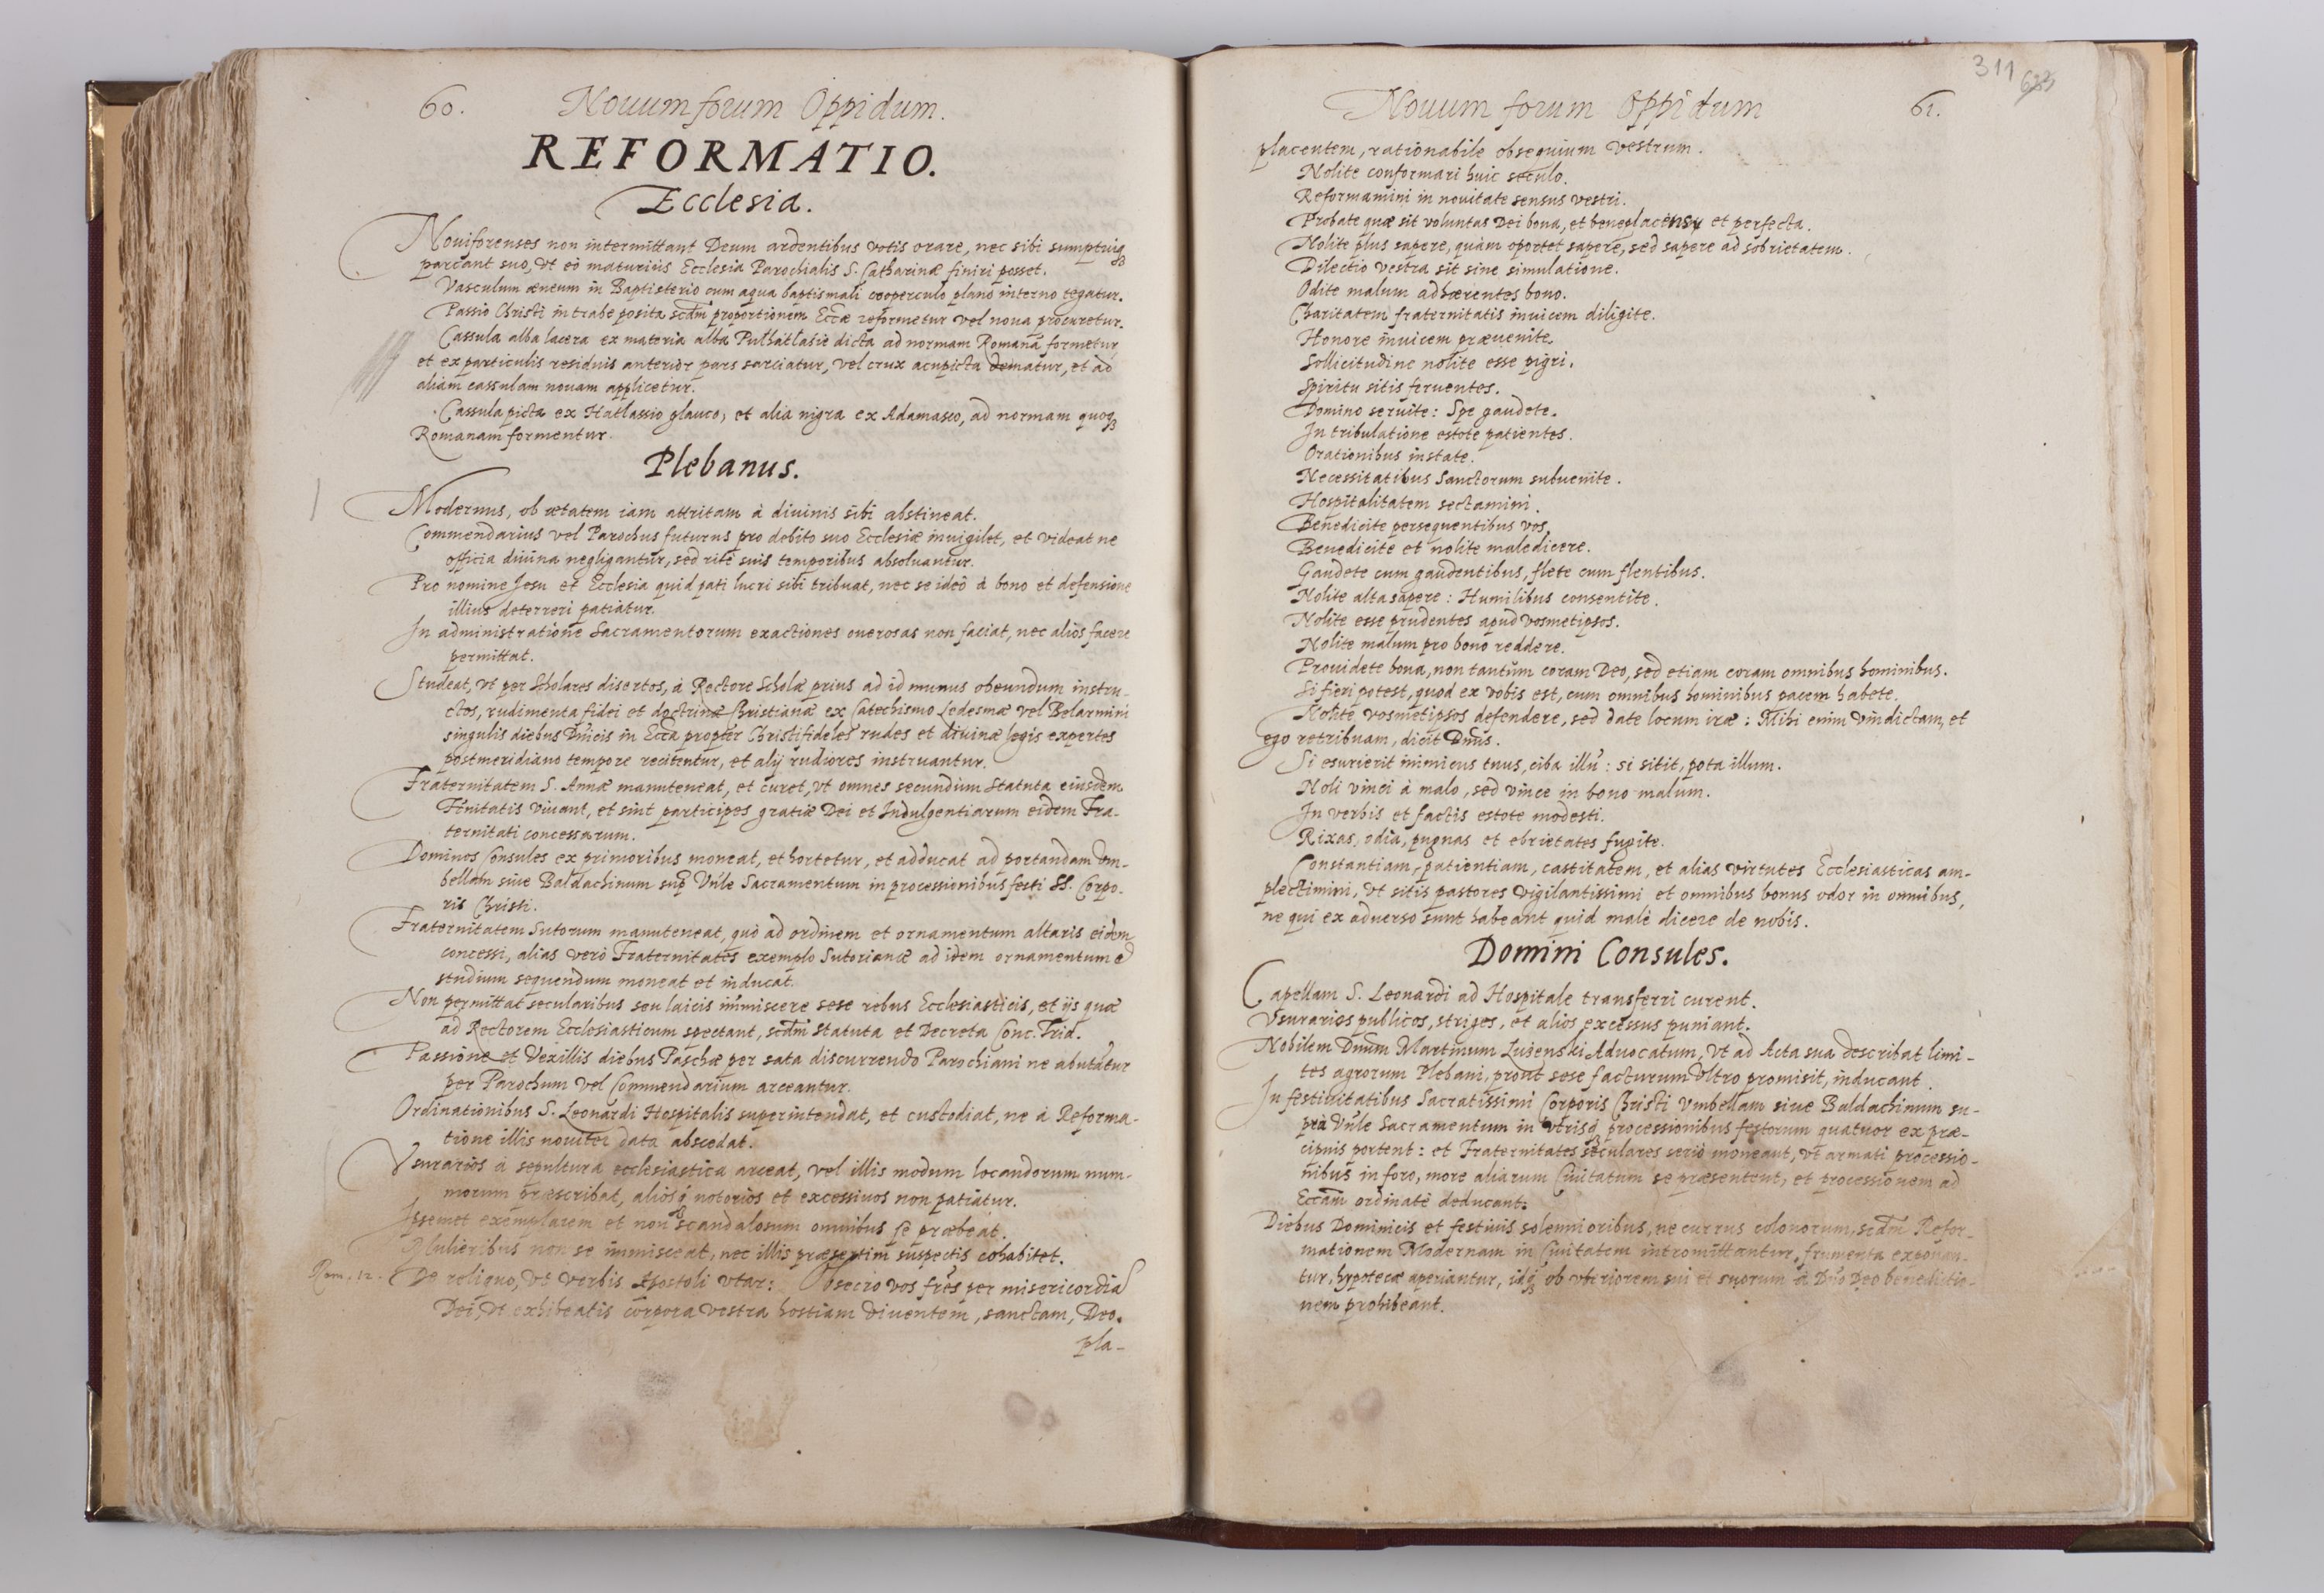 60. Nouum forum Oppidum.
REFORMATIO.
Ecclesia.
Nouiforenses non intermittant Deum ardentibus votis orare, nec sibi sumptuiq3
parcant suo, vt eò maturiùs Ecclesia Parochialis S. Catharinæ finiri posset.
Vasculum æneum in Baptisterio cum aqua baptismali cooperculo plano interno tegatur.
Passio Christi in trabe posita scdm̄ proportionem Eccæ reformetur vel noua procuretur.
Cassula alba lacera ex materia alba Pulhatlasie dicta ad normam Romanā formetur,
et ex particulis residuis anterior pars sarciatur, vel crux acupicta dematur, et ad
aliam cassulam nouam applicetur.
Cassula picta ex Hatlassio glauco, et alia nigra ex Adamasco, ad normam quoq3
Romanam formentur.
Plebanus.
Modernus, ob ætatem iam attritam à diuinis sibi abstineat.
Commendarius vel Parochus futurus pro debito suo Ecclesiæ inuigilet, et videat ne
officia diuina negligantur, sed ritè suis temporibus absoluantur.
Pro nomine Jesu et Ecclesia quid pati lucri sibi tribuat, nec se ideò à bono et defensione
illius deterreri patiatur.
In administratione Sacramentorum exactiones onerosas non faciat, nec alios facere
permittat.
Studeat, vt per Scholares disertos, à Rectore Scholæ prius ad id munus obeundum instru-
ctos, rudimenta fidei et doctrinæ Christianæ ex Catechismo Ledesmæ vel Belarmini
singulis diebus Dn̄icis in Ecca propter Christifideles rudes et diuinæ legis expertes
postmeridiano tempore recitentur, et alij rudiores instruantur.
Fraternitatem S. Annæ manuteneat, et curet, vt omnes secundum Statuta eiusdem
Fr̄nitatis viuant, et sint participes gratiæ Dei et Indulgentiarum eidem Fra-
ternitati concessarum.
Dominos Consules ex primoribus moneat, et hortetur, et adducat ad portandam Vm-
bellam siue Baldachinum supr̄ Vn̄le Sacramentum in processionibus festi SS. Corpo-
ris Christi.
Fraternitatem Sutorum manuteneat, quò ad ordinem et ornamentum altaris eidem
concessi, alias verò Fraternitates exemplo Sutorianæ ad idem ornamentum et
studium sequendum moneat et inducat.
Non permittat secularibus seu laicis immiscere sese rebus Ecclesiasticis, et ijs quæ
ad Rectorem Ecclesiasticum spectant, scdm̄ statuta et Decreta Conc. Trid.
Passione et Vexillis diebus Paschæ per sata discurrendo Parochiani ne abutātur
per Parochum vel Commendarium arceantur.
Ordinationibus S. Leonardi Hospitalis superintendat, et custodiat, ne à Reforma-
tione illis nouiter data abscedat.
Vsurarios à sepultura ecclesiastica arceat, vel illis modum locandorum num-
morum præscribat, aliosq3 notorios et excessiuos non patiatur.
Ipsemet exemplarem et non scandalosum omnibus se præbeat.
Mulieribus non se immisceat, nec illis præsertim suspectis cohabitet.
Rom. 12. De reliquo, vt verbis Apostoli vtar: Obsecro vos frēs per misericordiā
Dei, vt exhibeatis corpora vestra hostiam viuentem, sanctam, Deo
pla-
311
Nouum forum Oppidum 61.
placentem, rationabile obsequium vestrum.
Nolite conformari huic seculo.
Reformamini in nouitate sensus vestri.
Probate quæ sit voluntas Dei bona, et beneplacens et perfecta.
Nolite plus sapere, quàm oportet sapere, sed sapere ad sobrietatem.
Dilectio vestra sit sine simulatione.
Odite malum adhærentes bono.
Charitatem fraternitatis inuicem diligite.
Honore inuicem præuenite.
Sollicitudine nolite esse pigri.
Spiritu sitis feruentes.
Domino seruite: Spe gaudete.
In tribulatione estote patientes.
Orationibus instate.
Necessitatibus Sanctorum subuenite.
Hospitalitatem sectamini.
Benedicite persequentibus vos,
Benedicite et nolite maledicere.
Gaudete cum gaudentibus, flete cum flentibus.
Nolite alta sapere: Humilibus consentite.
Nolite esse prudentes apud vosmetipsos.
Nolite malum pro bono reddere.
Prouidete bona, non tantùm coram Deo, sed etiam coram omnibus hominibus.
Si fieri potest, quod ex vobis est, cum omnibus hominibus pacem habete.
Nolite vosmetipsos defendere, sed date locum iræ: Mihi enim vindictam, et
ego retribuam, dicit Dn̄us.
Si esurierit inimicus tuus, ciba illū: si sitit, pota illum.
Noli vinci à malo, sed vince in bono malum.
In verbis et factis estote modesti.
Rixas, odia, pugnas et ebrietates fugite.
Constantiam, patientiam, castitatem, et alias virtutes Ecclesiasticas am-
plectimini, vt sitis pastores vigilantissimi et omnibus bonus odor in omnibus,
ne qui ex aduerso sunt habeant quid malè dicere de nobis.
Domini Consules.
Capellam S. Leonardi ad Hospitale transferri curent.
Vsurarios publicos, striges, et alios excessus puniant.
Nobilem Dnum Martinum Lusenski Aduocatum, vt ad Acta sua describat limi-
tes agrorum Plebani, prout sese facturum vltro promisit, inducant.
In festiuitatibus Sacratissimi Corporis Christi Vmbellam siue Baldachinum su-
prà Vn̄le Sacramentum in vtrisq3 processionibus festorum quatuor ex præ-
cipuis portent: et Fraternitates seculares seriò moneant, vt armati processio-
nibus in foro, more aliarum Ciuitatum se præsentent, et processionem ad
Eccam ordinatè deducant.
Diebus Dominicis et festiuis solennioribus, ne currus colonorum, scdm̄ Refor-
mationem Modernam in Ciuitatem intromittantur, frumenta exponan-
tur, hypotecæ aperiantur, idq3 ob vberiorem sui et suorum à Dn̄o Deo benedictio-
nem prohibeant.